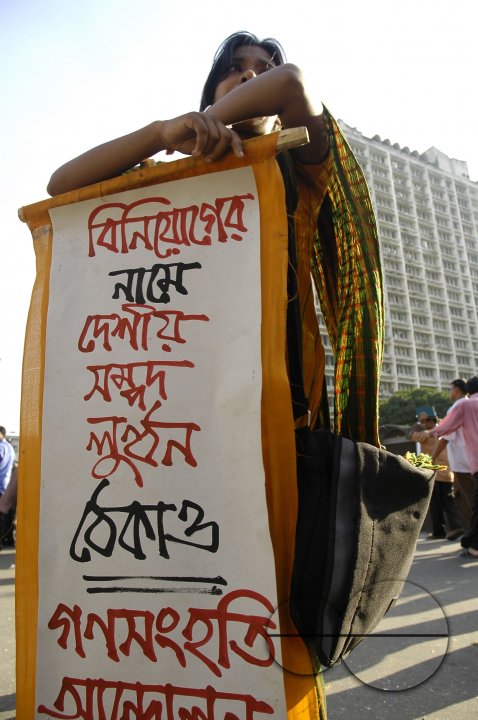 বিনিয়োগের
নামে
দেশীয়
সম্পদ
লুণ্ঠন
ঠেকাও
গণসংহতি
আন্দোলন